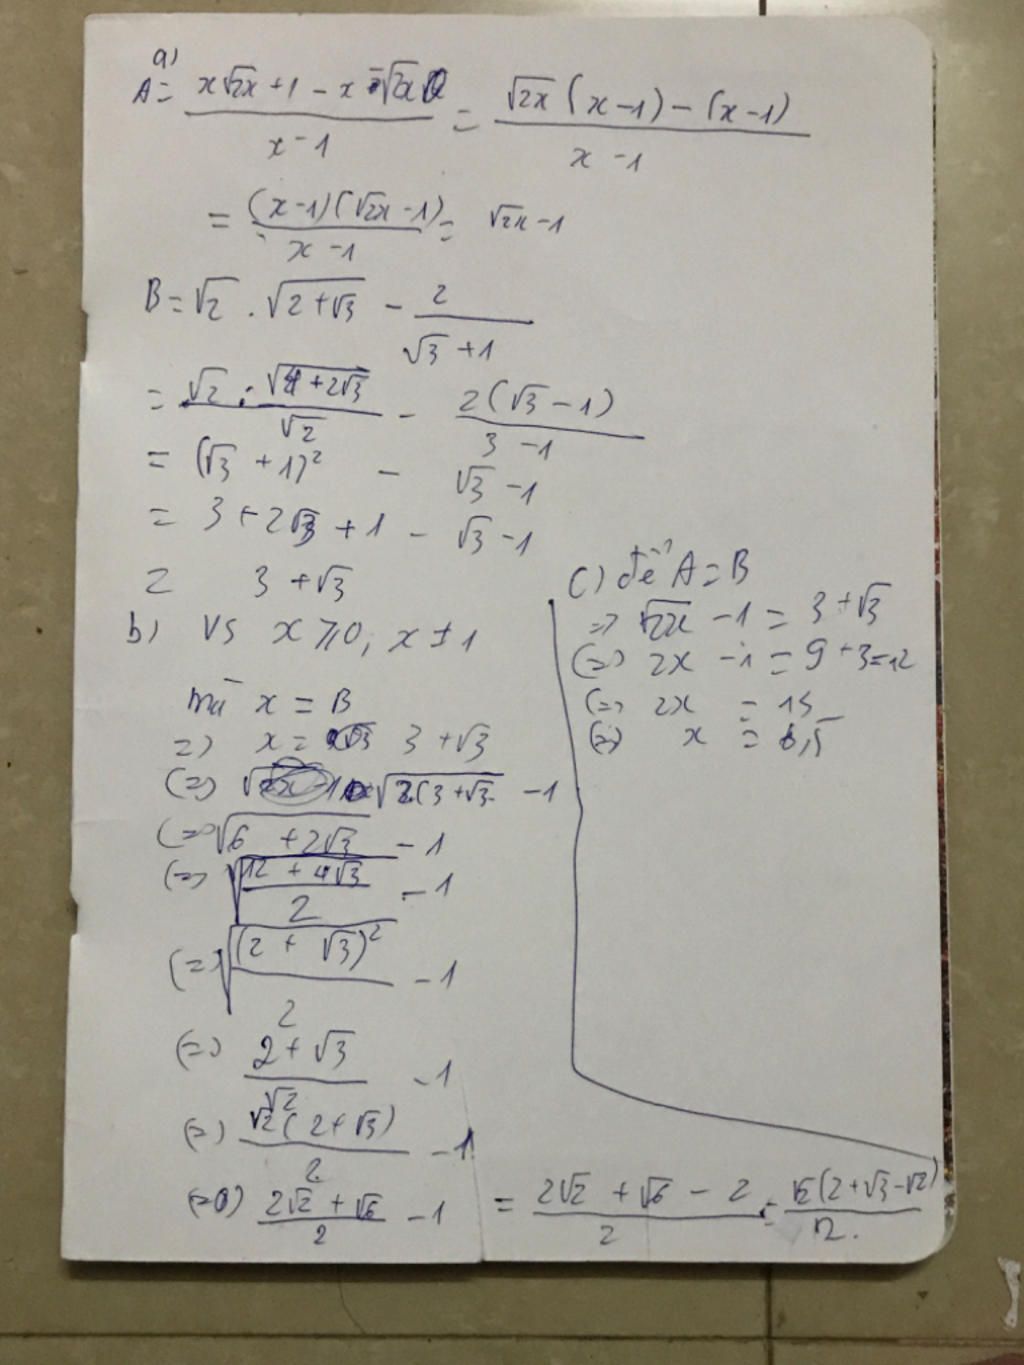 a)
A = \frac{x\sqrt{2x} + 1 - x - \sqrt{2x}}{x - 1} = \frac{\sqrt{2x}(x - 1) - (x - 1)}{x - 1}
= \frac{(x - 1)(\sqrt{2x} - 1)}{x - 1} = \sqrt{2x} - 1
B = \sqrt{2} . \sqrt{2 + \sqrt{3}} - \frac{2}{\sqrt{3} + 1}
= \frac{\sqrt{2} . \sqrt{4 + 2\sqrt{3}}}{\sqrt{2}} - \frac{2(\sqrt{3} - 1)}{3 - 1}
= (\sqrt{3} + 1)^2 - \sqrt{3} - 1
= 3 + 2\sqrt{3} + 1 - \sqrt{3} - 1
= 3 + \sqrt{3}
b) Vs x ⩾ 0, x ± 1
mà x = B
=> x = 3 + \sqrt{3}
(=) \sqrt{2(3 + \sqrt{3}} - 1
(=> \sqrt{6 + 2\sqrt{3}} - 1
(=> \sqrt{\frac{12 + 4\sqrt{3}}{2}} - 1
(=> \sqrt{\frac{(2 + \sqrt{3})^2}{2}} - 1
(=> \frac{2 + \sqrt{3}}{\sqrt{2}} - 1
(=) \frac{\sqrt{2}(2 + \sqrt{3})}{2} - 1
(=) \frac{2\sqrt{2} + \sqrt{6}}{2} - 1 = \frac{2\sqrt{2} + \sqrt{6} - 2}{2} = \frac{\sqrt{2}(2 + \sqrt{3} - \sqrt{2})}{2}.
c) để A = B
=> \sqrt{2x} - 1 = 3 + \sqrt{3}
(=) 2x - 1 = 9 + 3 = 12
(=> 2x = 13
(=) x = 6,5